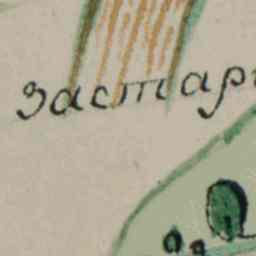 застар